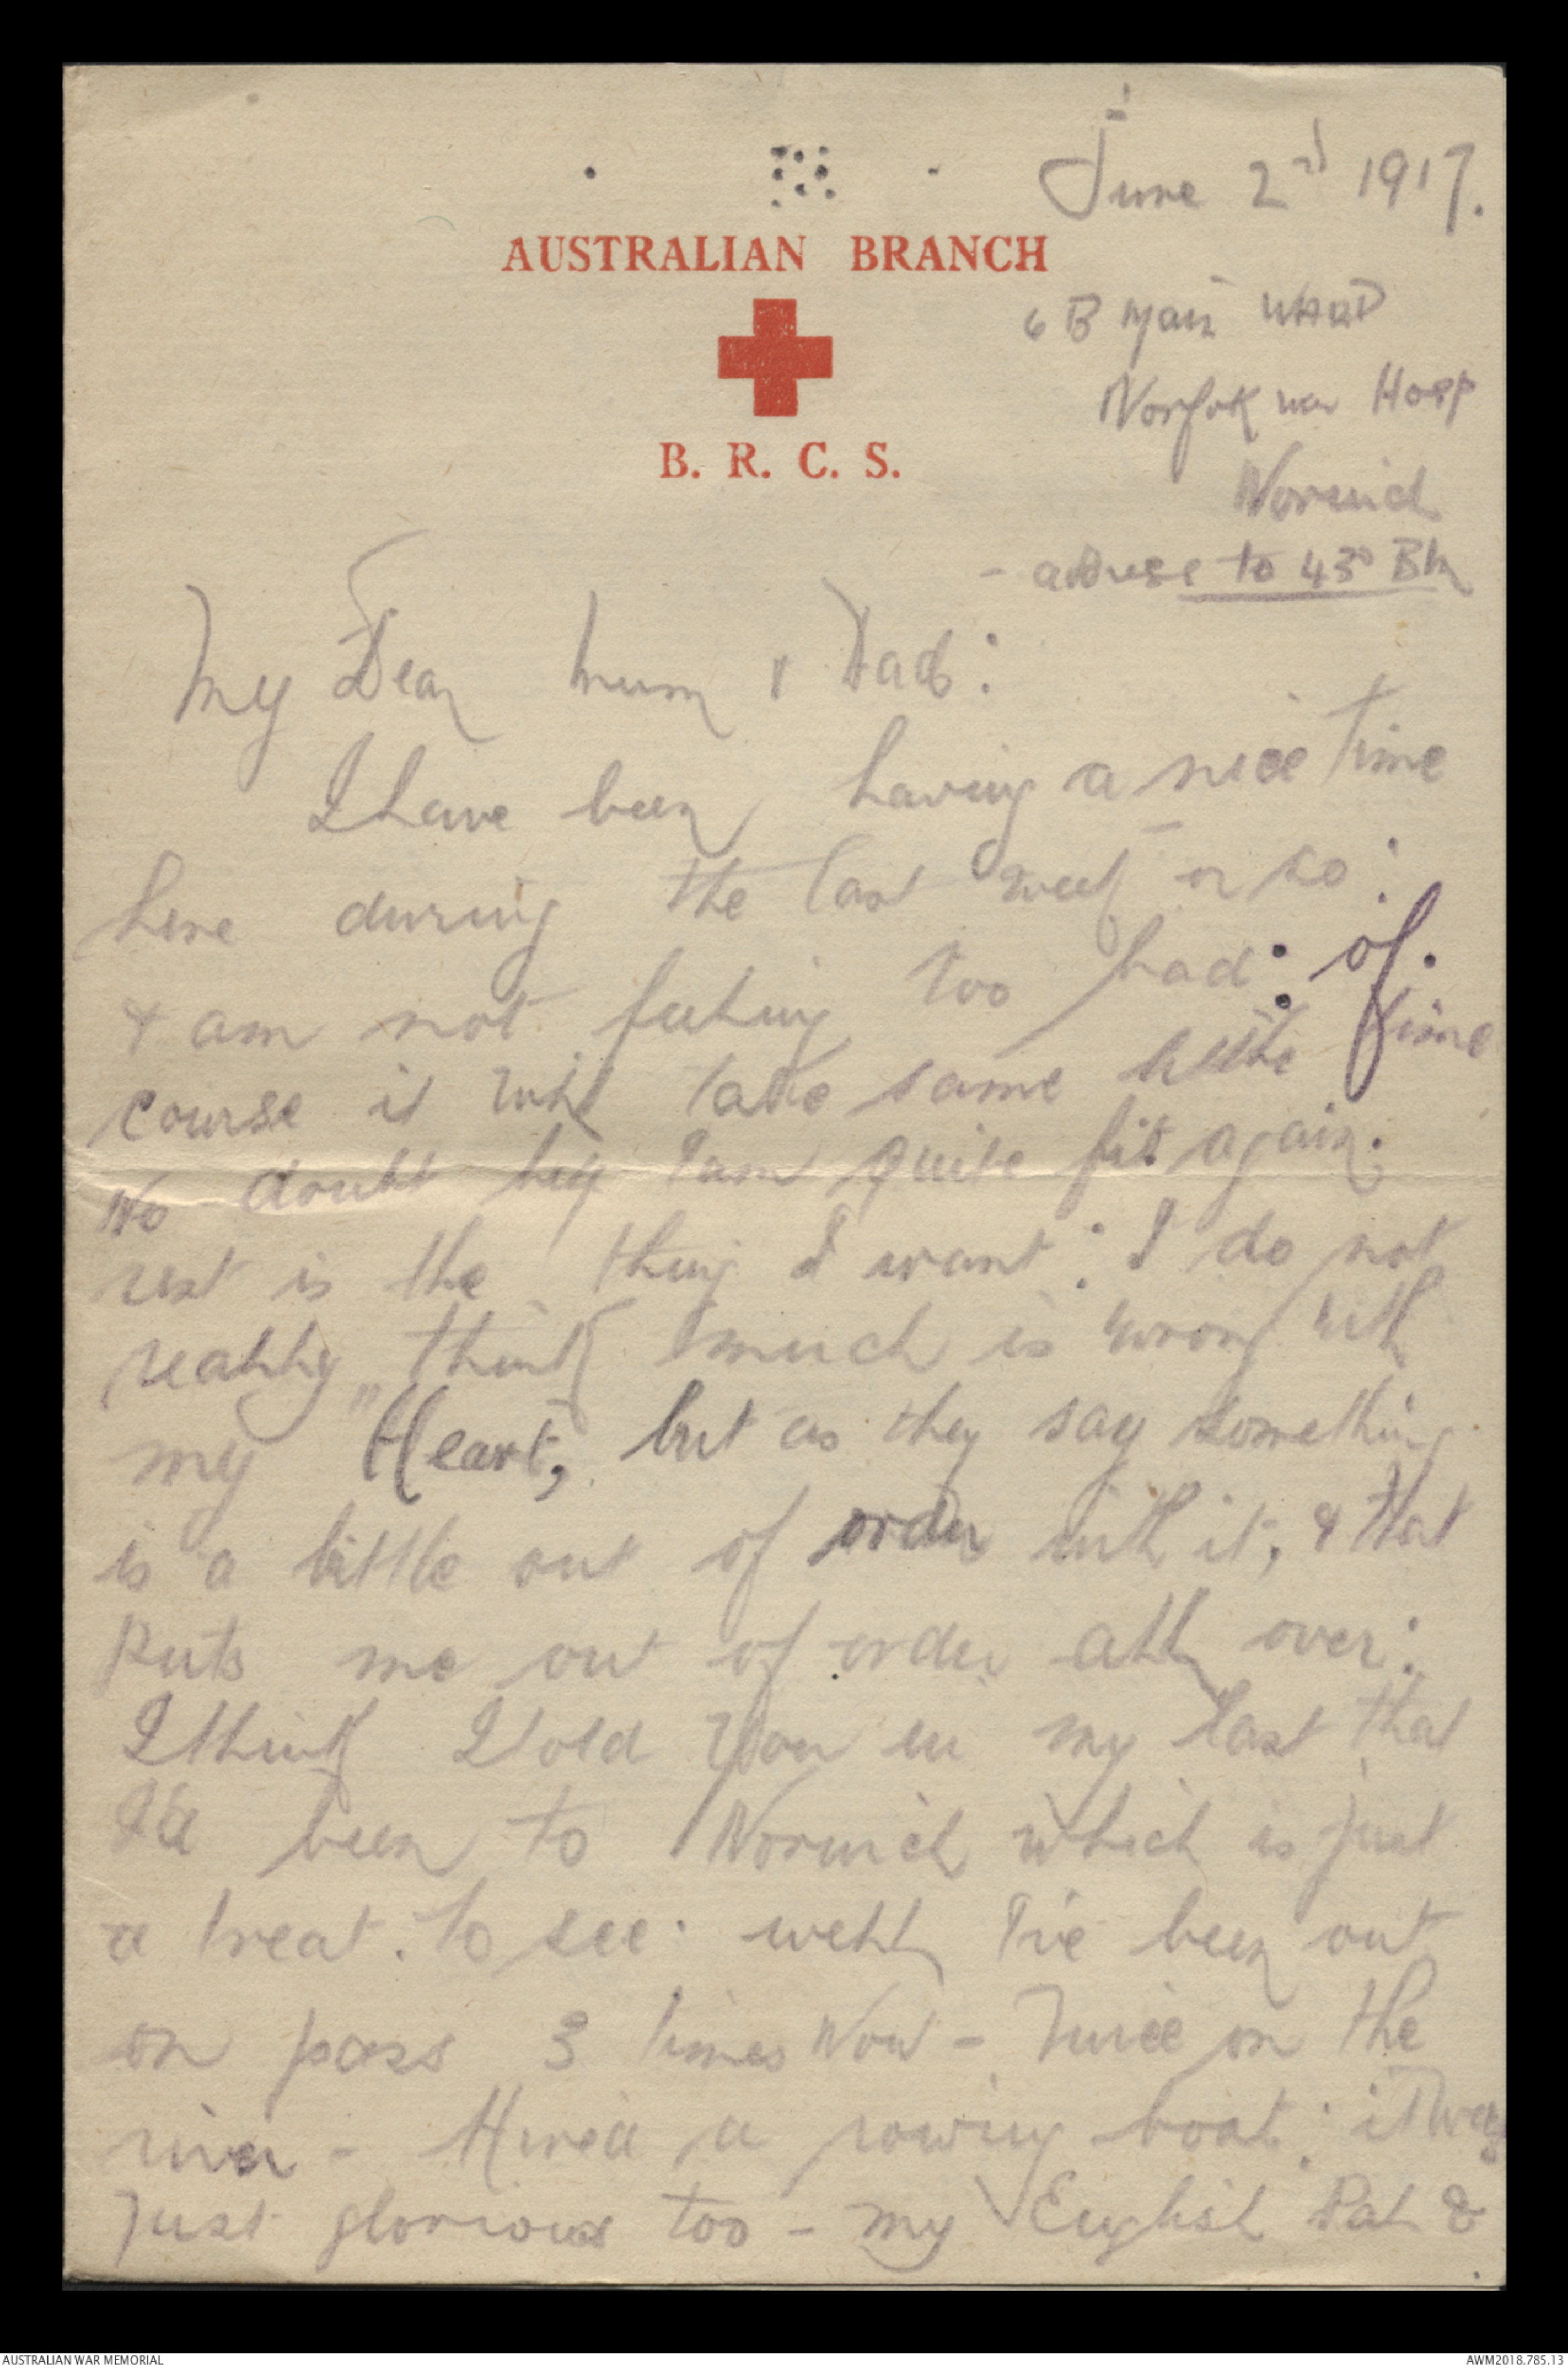 June 2nd 1917.
AUSTRALIAN BRANCH
6 B Main WARD
Norfolk War Hosp
B. R. C. S.
Norwich
- address to 43rd Btn
My Dear Mum & Dad:
I have been having a nice time
here during the last week or so:
& am not feeling too bad: of.
course it will take some little time
No doubt before I am quite fit again.
rest is the thing I want: I do not
really think much is wrong with
my "Heart", but as they say something
is a little out of order with it, & that
puts me out of order all over:
I think I told you in my last that
I'd been to Norwich which is just
a treat. to see. well I've been out
on pass 3 times Now - Twice on the
river - Hired a rowing boat: it was
just glorious too - my English Pal &
AUSTRALIAN WAR MEMORIAL
AWM2018.785.13